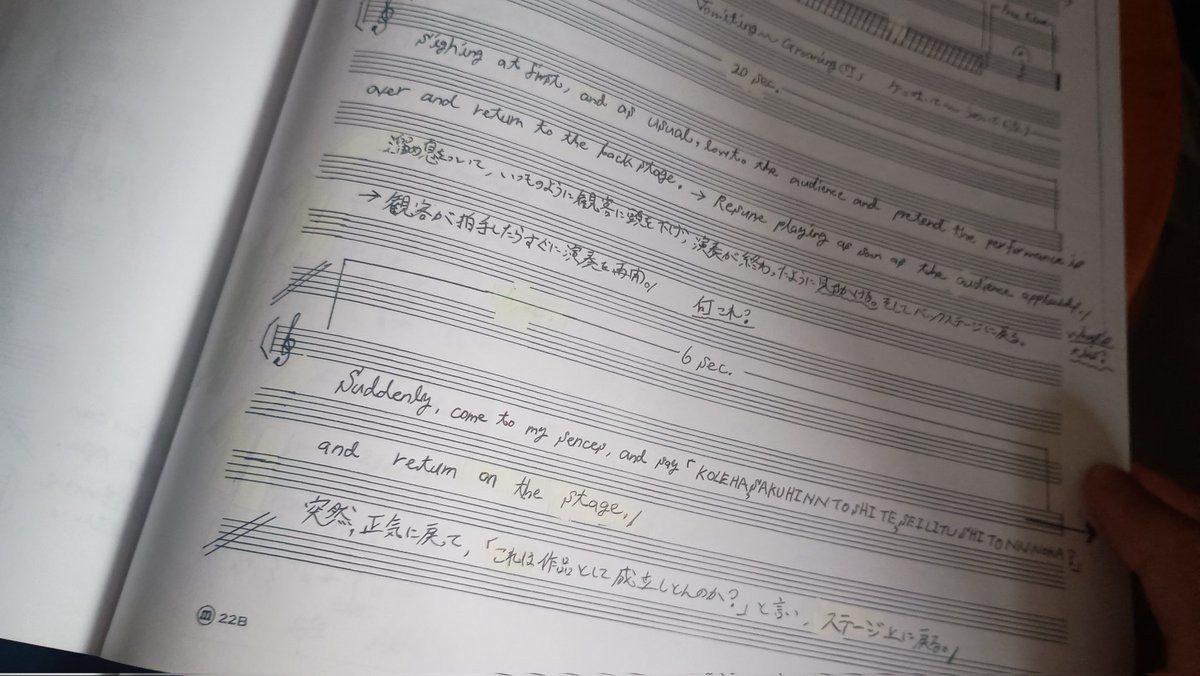 Vomiting ~ Groaning
20 sec.
Sighing at first, and as usual, bow to the audience and pretend the performance is
over and return to the back stage. → Resume playing as soon as the audience applauds.
溜め息をついて、いつものように観客に頭を下げ、演奏が終わったように見せかける。そしてバックステージに戻る。
→ 観客が拍手したらすぐに演奏を再開。 何これ?
6 sec.
Suddenly, come to my sences, and say「KOLEHA SAKUHINN TO SHI TE SEILITU SHI TONN NOKA?」
and return on the stage.
突然、正気に戻って、「これは作品として成立しとんのか?」と言い、ステージ上に戻る。
m 22B